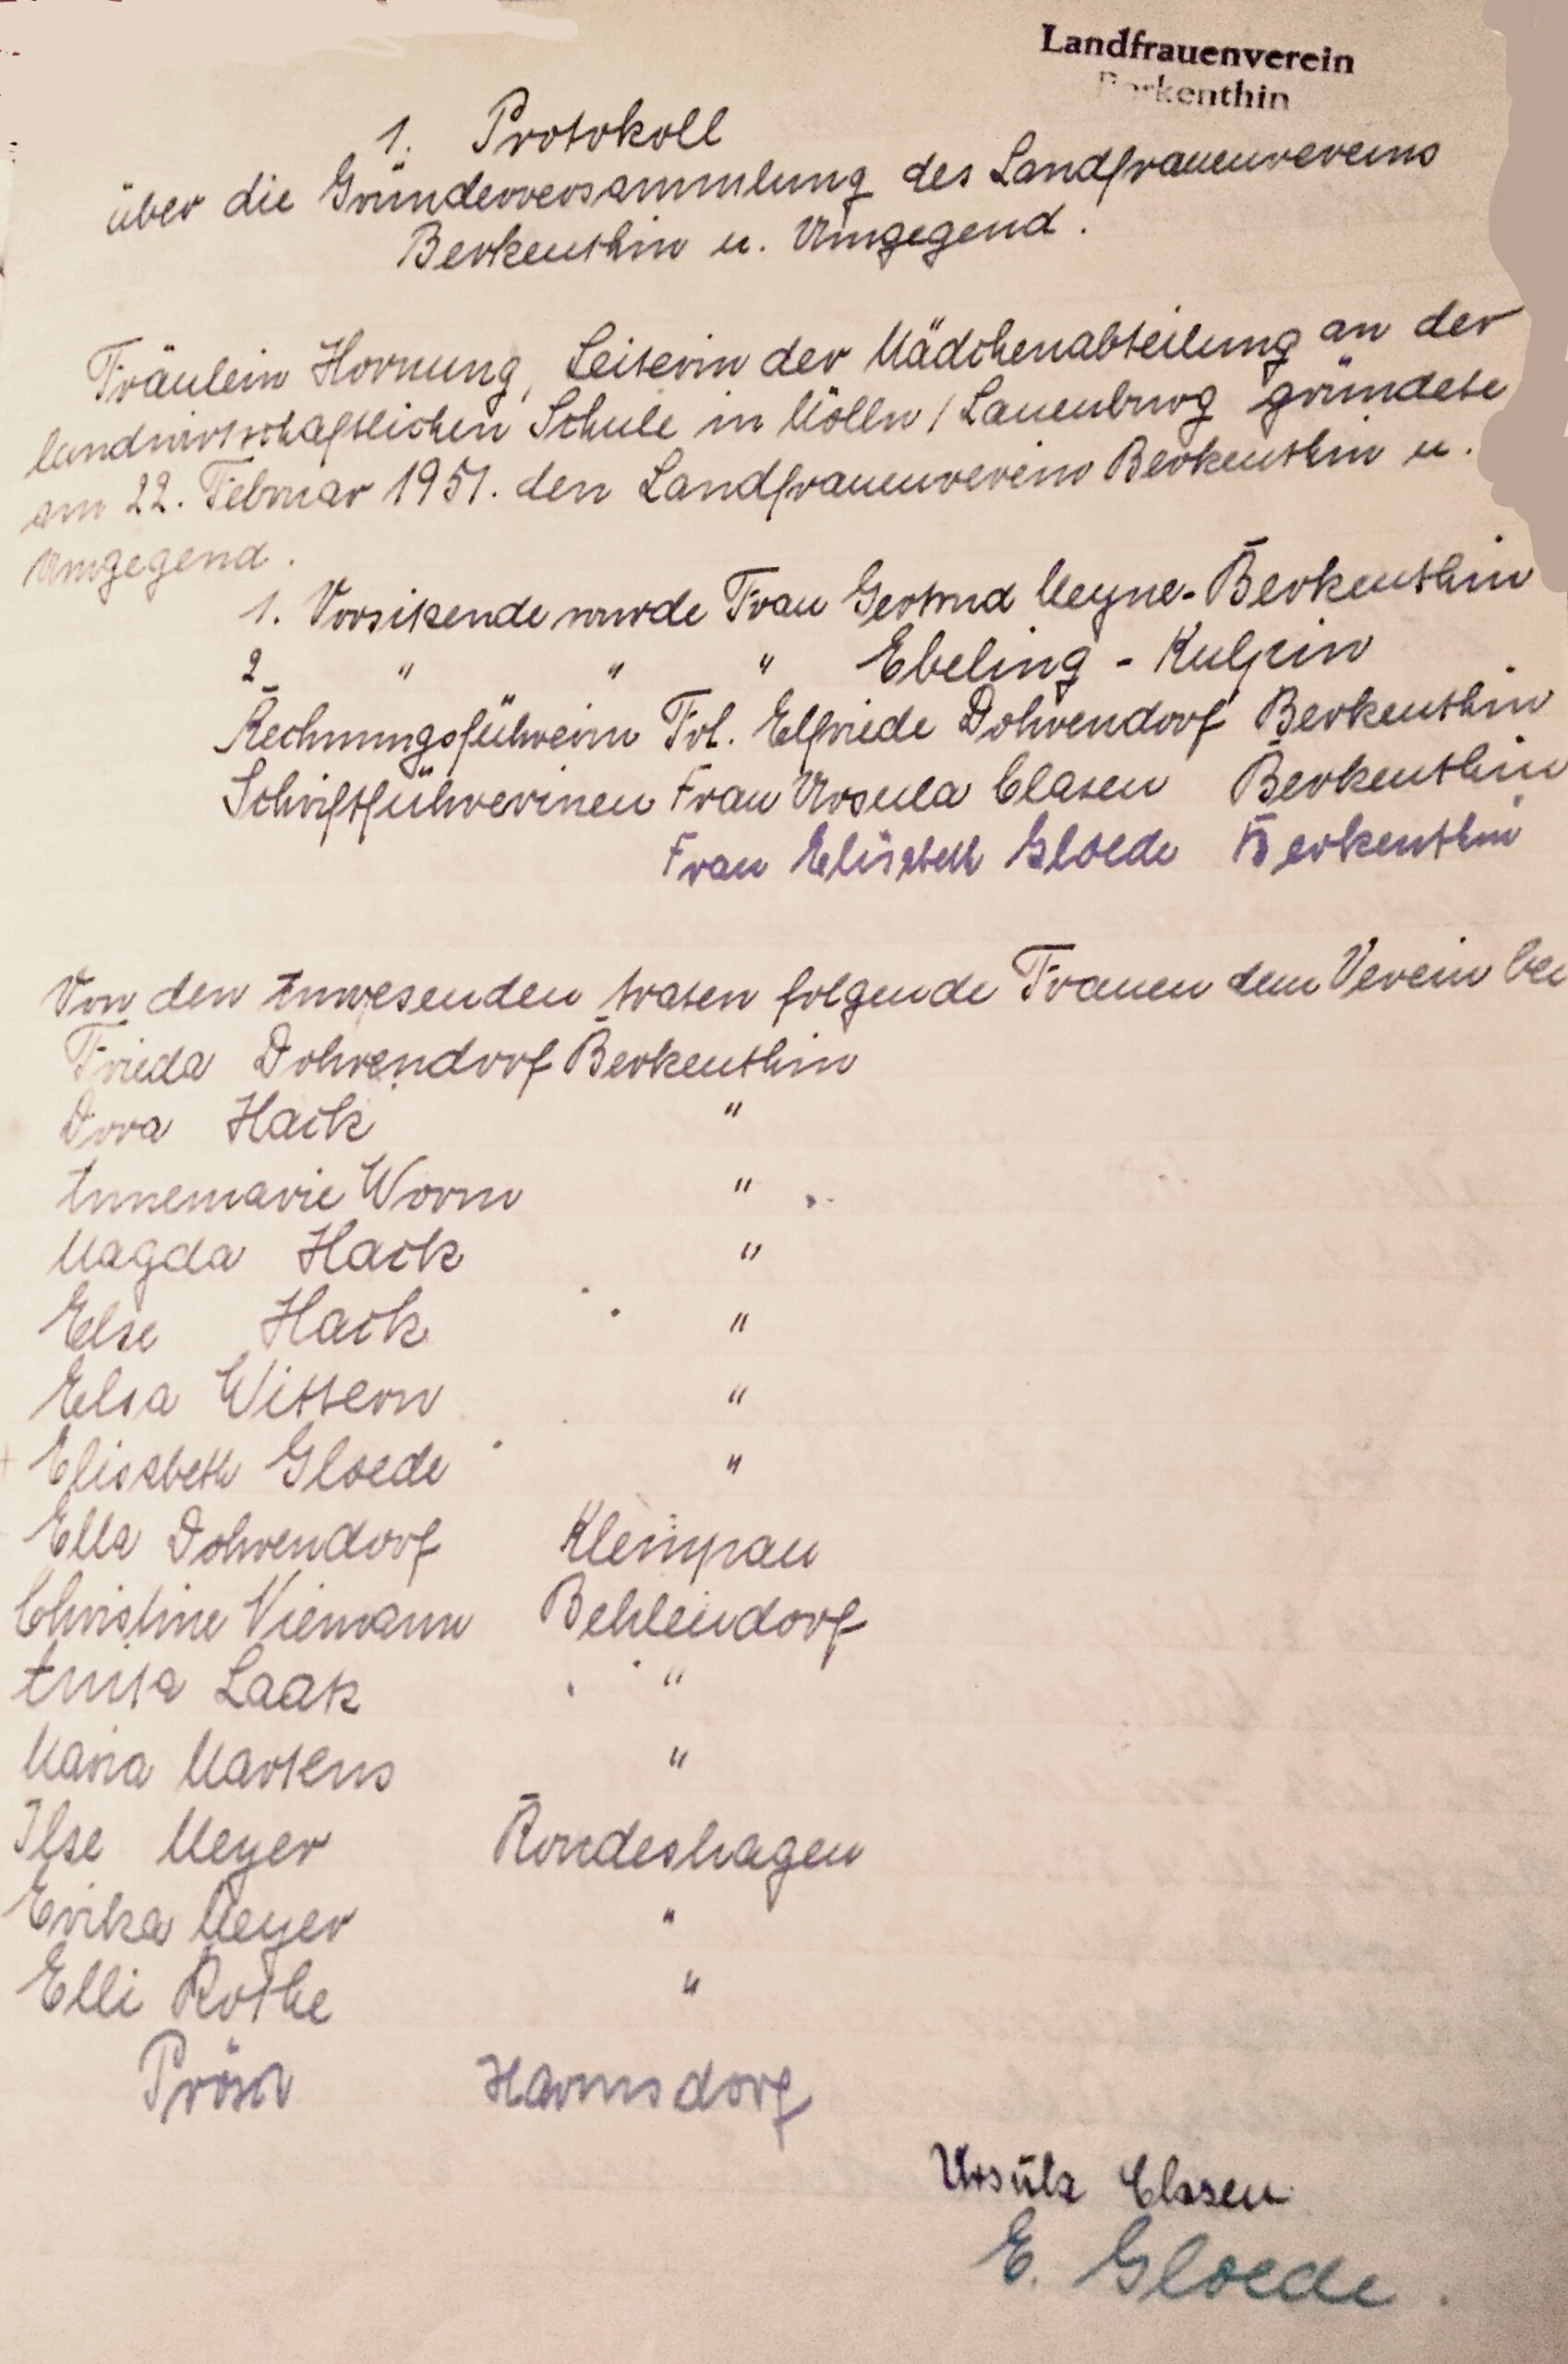 Landfrauenverein
Berkenthin
1. Protokoll
über die Gründerversammlung des Landfrauenvereins
Berkenthin u. Umgegend.
Fräulein Hornung, Leiterin der Mädchenabteilung an der
landwirtschaftlichen Schule in Mölln / Lauenburg gründete
am 22. Februar 1951. den Landfrauenverein Berkenthin u.
Umgegend.
1. Vorsitzende wurde Frau Gertrud Meyne - Berkenthin
2. " " " Ebeling - Kulpin
Rechnungsführerin Frl. Elfriede Dohrendorf Berkenthin
Schriftführerinen Frau Ursula Clasen Berkenthin
Frau Elisabeth Gloede Berkenthin
Von den Anwesenden traten folgende Frauen dem Verein bei
Frieda Dohrendorf Berkenthin
Dora Hack "
Annemarie Worm "
Magda Hack "
Else Hack "
Elsa Wittern "
Elisabeth Gloede "
Ella Dohrendorf Klempau
Christine Niemann Behlendorf
Anita Laak "
Maria Martens "
Ilse Meyer Rondeshagen
Erika Meyer "
Elli Rothe "
Harmsdorf
Ursula Clasen
E. Gloede.